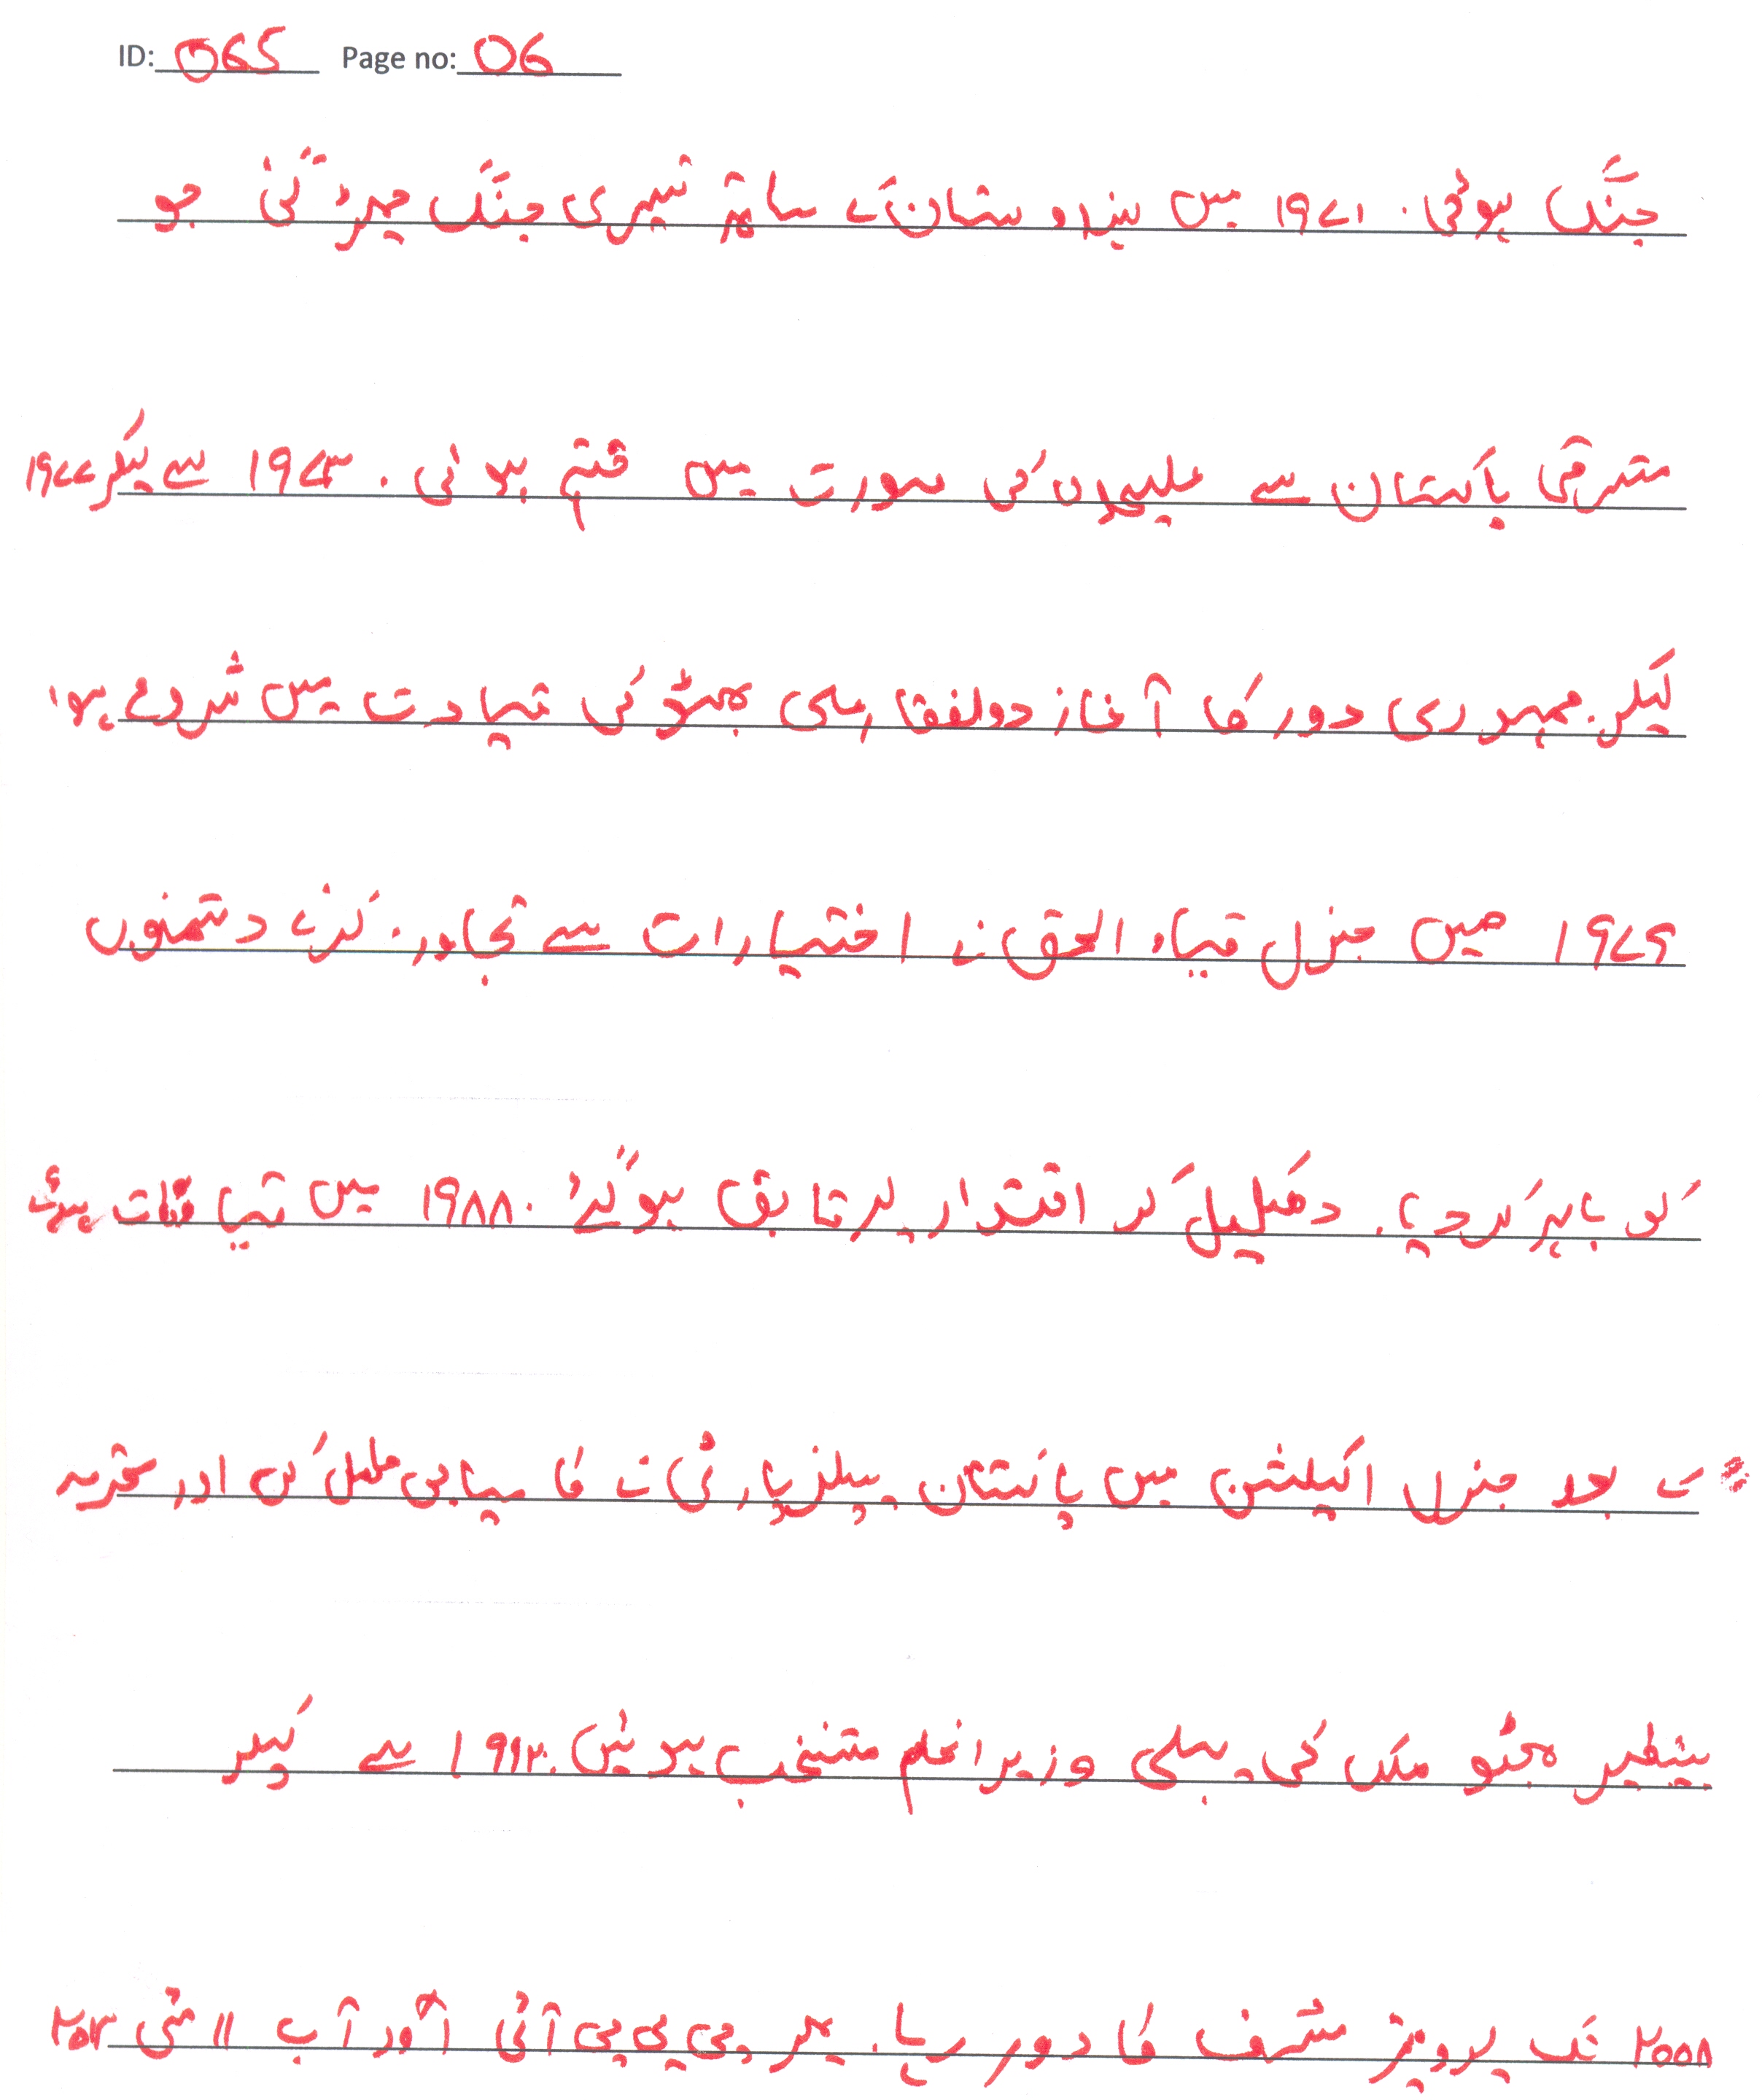 ID: 065 Page no: 06
جنگ ہوئی۔ ۱۹۷۱ میں ہندوستان کے ساتھ تیسری جنگ چھڑ گئی جو
مشرقی پاکستان سے علیحدگی کی صورت میں ختم ہوئی۔ ۱۹۷۳ سے لیکر ۱۹۷۷
لیکن جمہوری دور کا آغاز ذولفقار علی بھٹو کی قیادت میں شروع ہوا
۱۹۷۹ میں جنرل ضیاء الحق نے اختیارات سے تجاوز کرنے دشمنوں
کو باہر کر دیا۔ دھکیل کر اقتدار پر قابض ہو گئے۔ ۱۹۸۸ میں ہوئے
کے بعد جنرل الیکشن میں پاکستان پیپلز پارٹی نے کامیابی حاصل کی اور محترمہ
بینظیر بھٹو ملک کی پہلی وزیراعظم منتخب ہوئیں۔ سے لیکر
۲۰۰۸ تک پرویز مشرف کا دور رہا۔ پھر پی پی پی آئی اور اب ۱۱ مئی